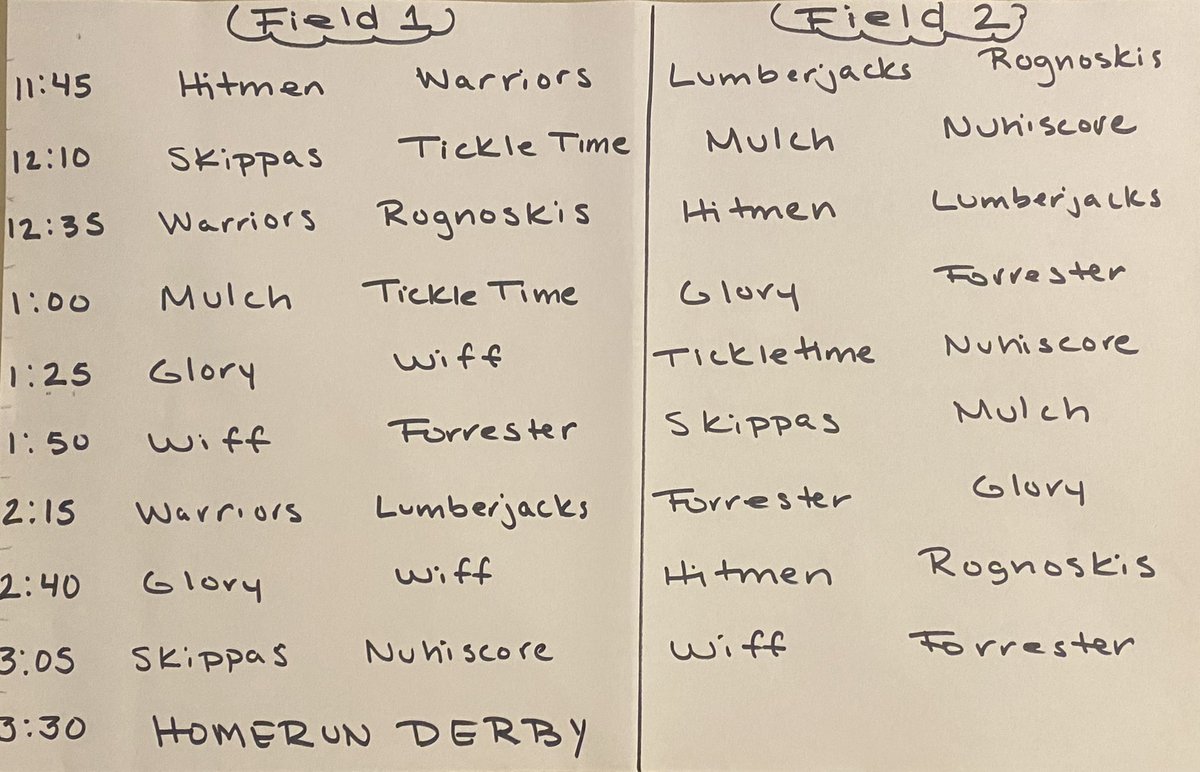 Field 1 Field 2
11:45 Hitmen Warriors Lumberjacks Rognoskis
12:10 Skippas Tickle Time Mulch Nuhiscore
12:35 Warriors Rognoskis Hitmen Lumberjacks
1:00 Mulch Tickle Time Glory Forrester
1:25 Glory Wiff Tickletime Nuhiscore
1:50 Wiff Forrester Skippas Mulch
2:15 Warriors Lumberjacks Forrester Glory
2:40 Glory Wiff Hitmen Rognoskis
3:05 Skippas Nuhiscore Wiff Forrester
3:30 HOMERUN DERBY